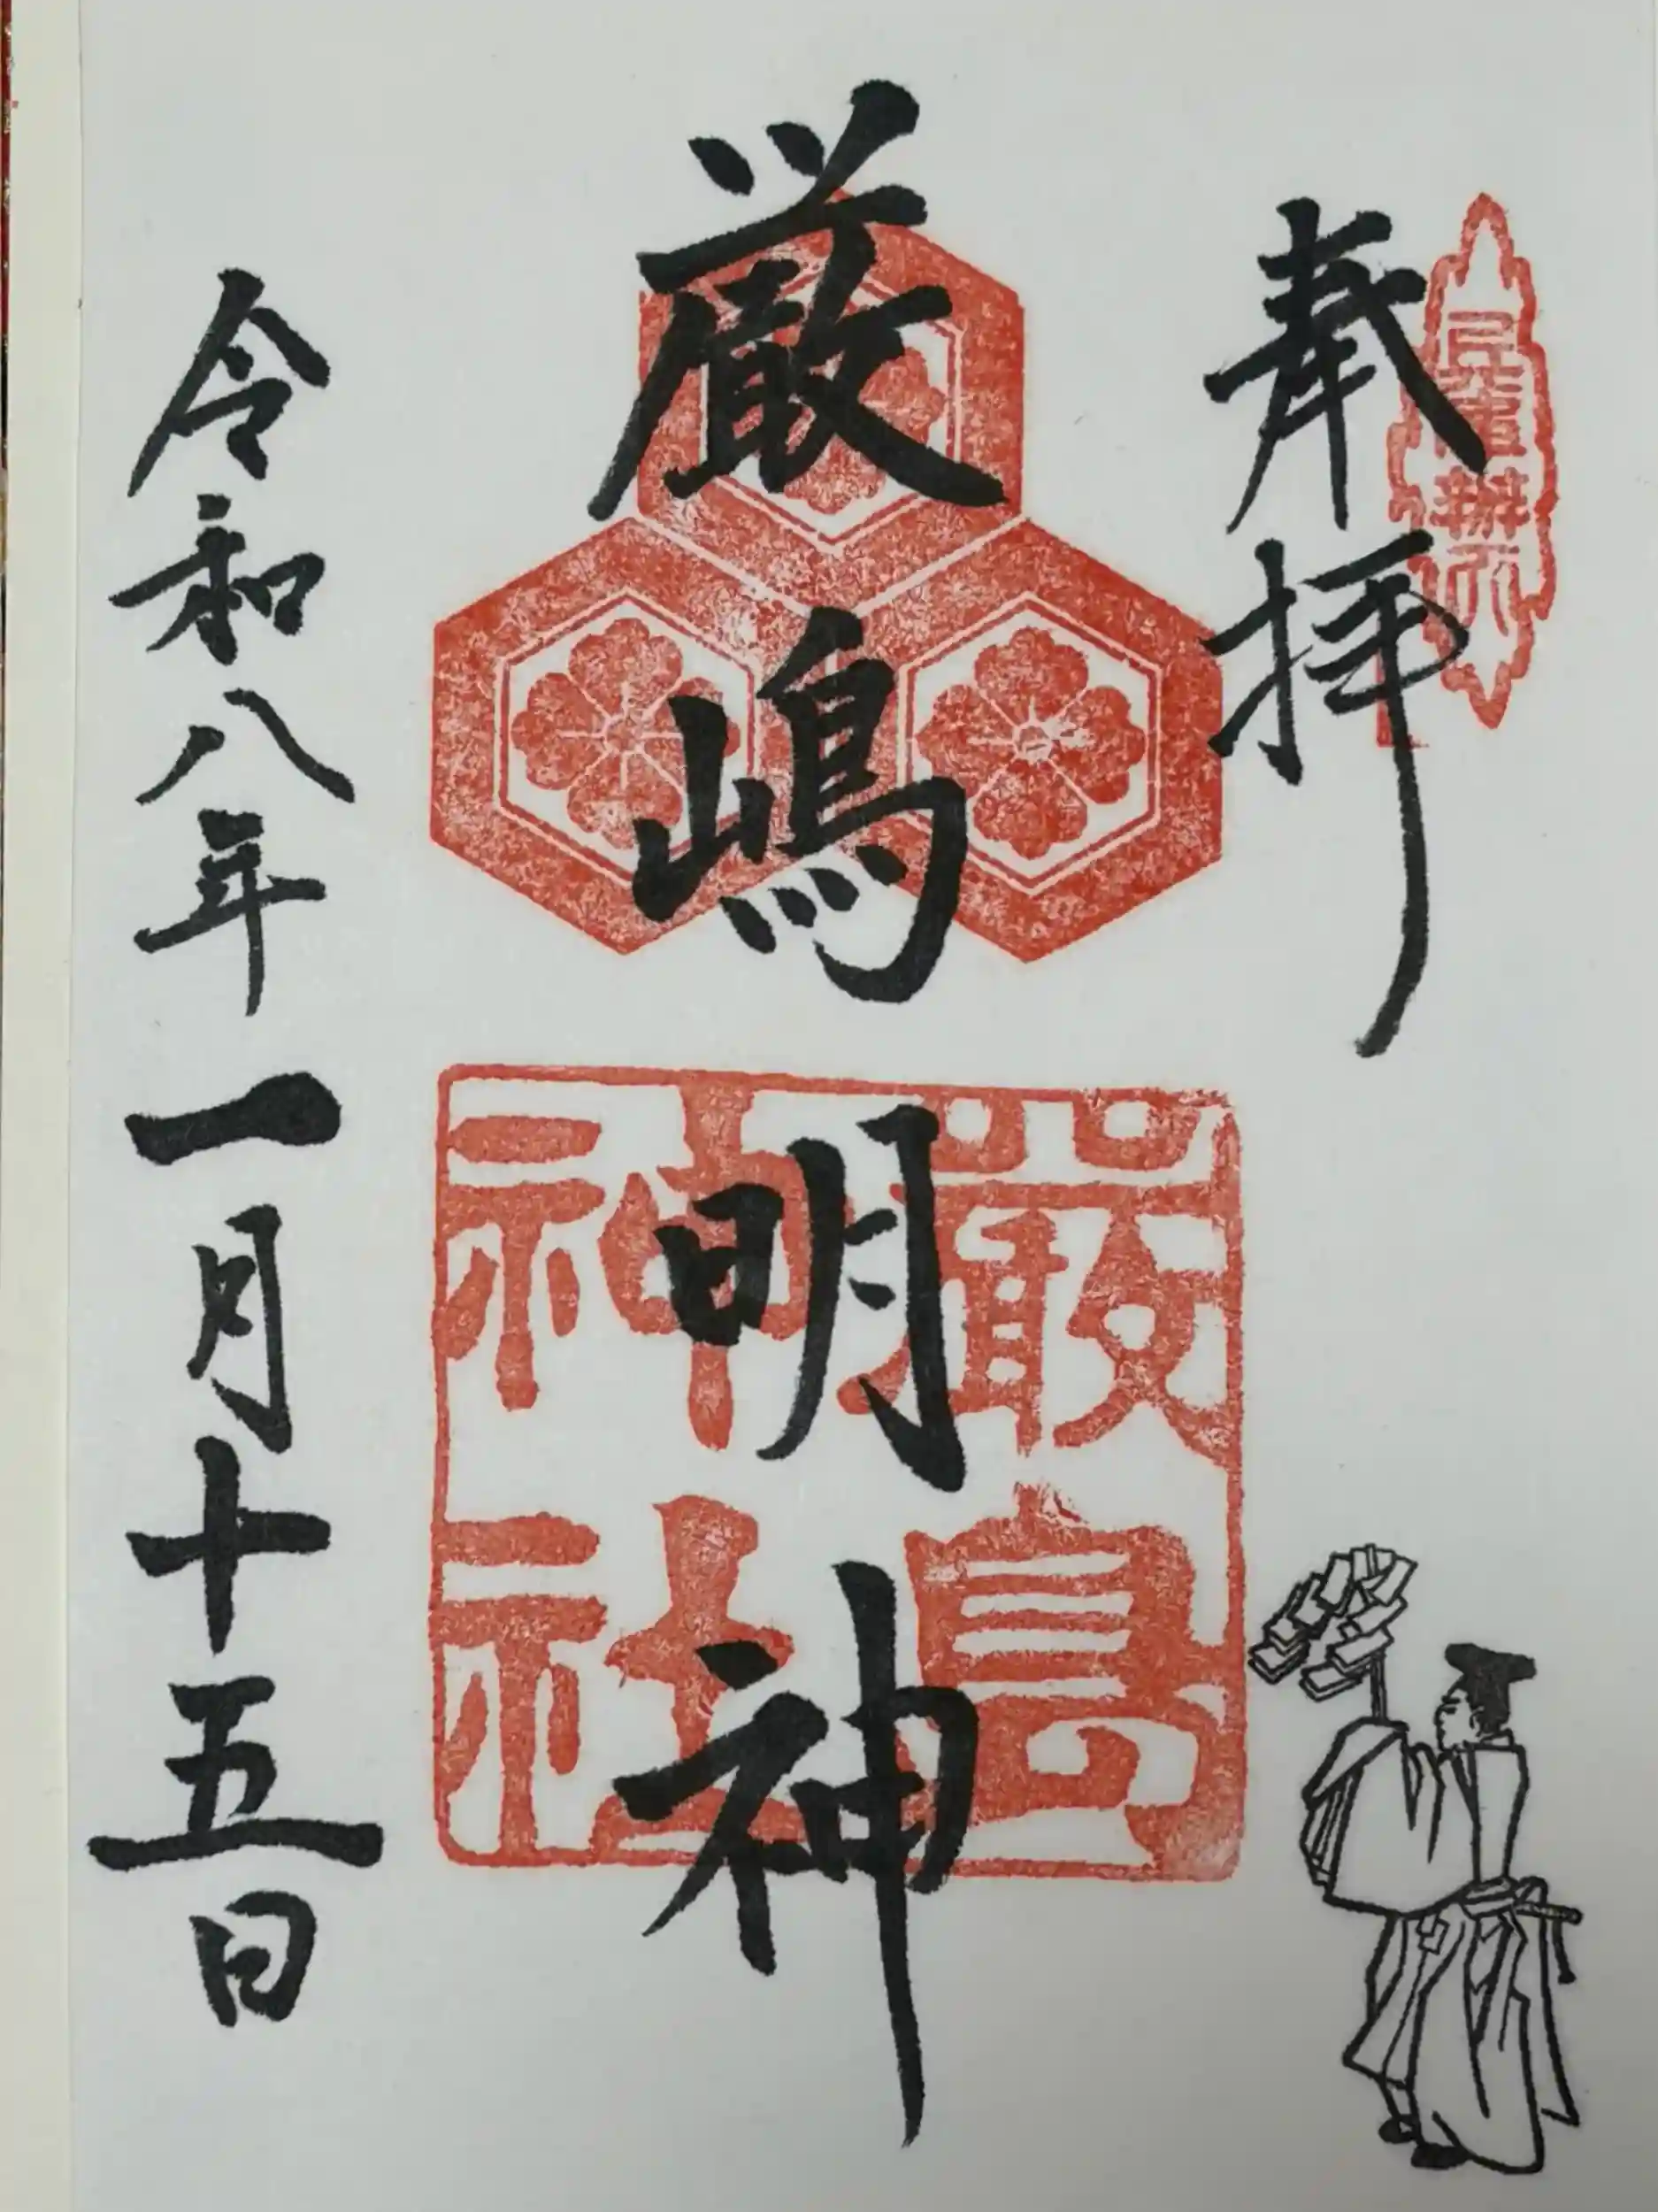 奉拝
厳嶋明神
嚴島
神社
令和八年一月十五日